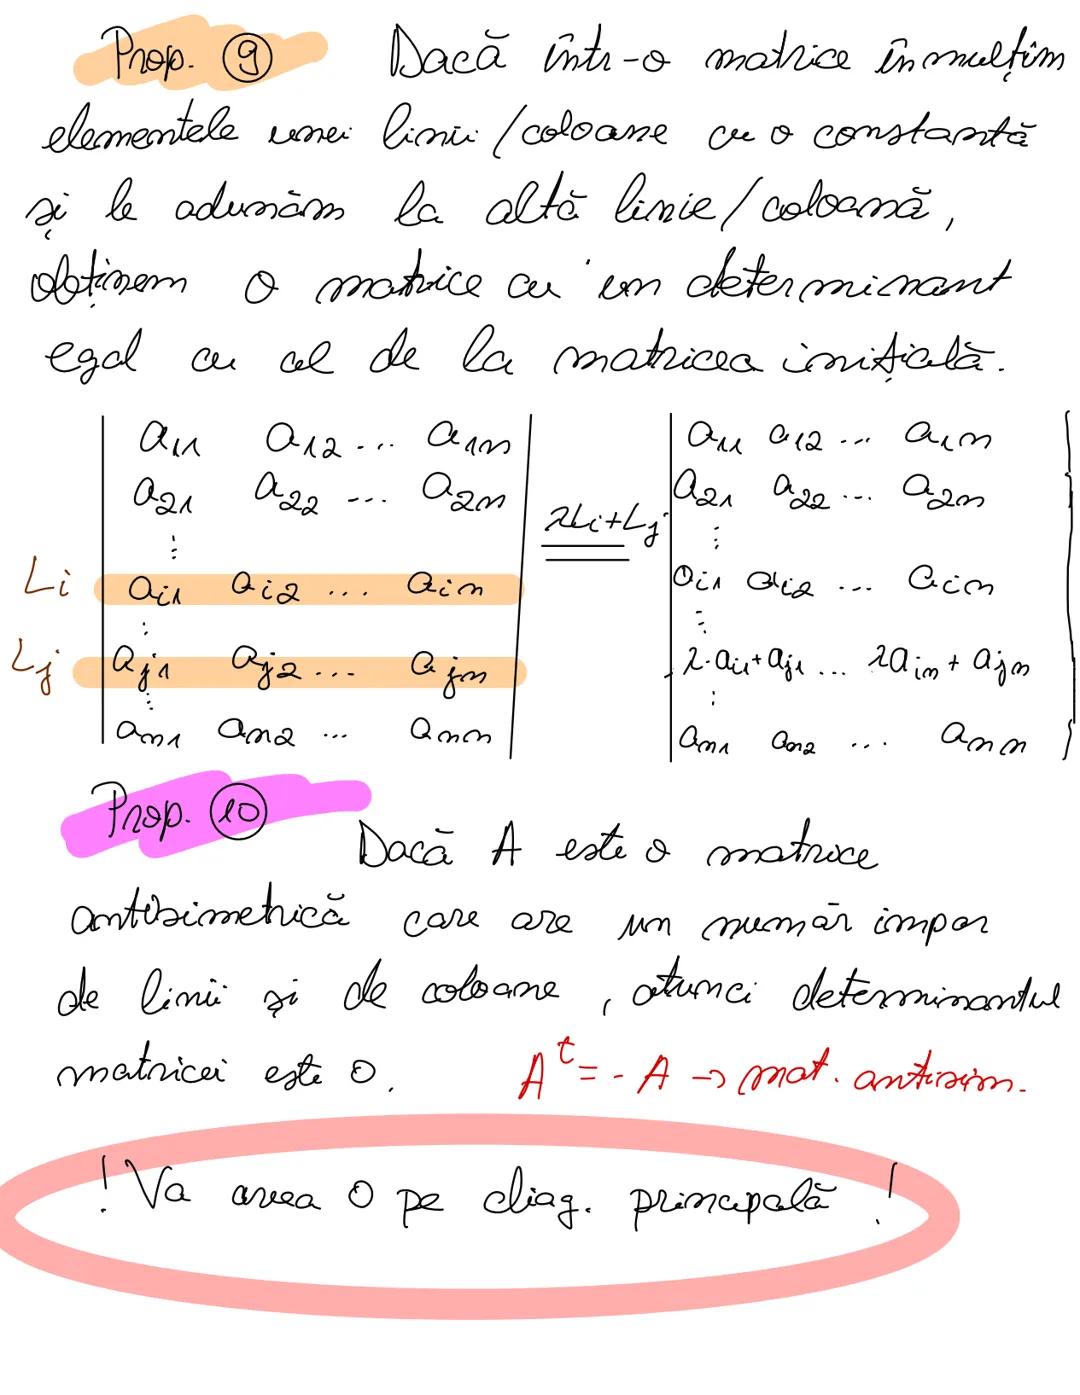 Prop. 9 Dacă într-o matrice înmulțim
elementele unei linii / coloane cu o constantă
și le adunăm la altă linie / coloană,
obținem o matrice cu un determinant
egal cu cel de la matricea inițială.
a11 a12 ... a1n a11 a12 ... a1n
a21 a22 ... a2n a21 a22 ... a2n
⋮ λLi+Lj ⋮
Li ai1 ai2 ... ain ai1 ai2 ... ain
⋮ ⋮
Lj aj1 aj2 ... ajn λ·ai1+aj1 ... λain+ajn
⋮ ⋮
an1 an2 ... ann an1 an2 ... ann
Prop. 10
Dacă A este o matrice
antisimetrică care are un număr impar
de linii și de coloane, atunci determinantul
matricei este 0. A^t = -A → mat. antisim.
! Va avea 0 pe diag. principală !